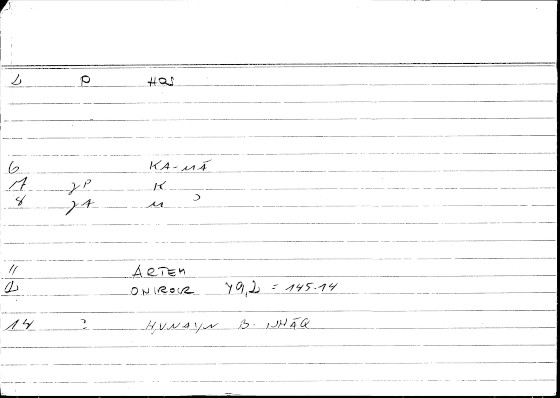 2 P HQS
6 KA-MĀ
7 γP K
8 γA M
11 ARTEM
12 ONIROCR 79,2 = 145.14
14 ? ḤUNAYN B. ISḤĀQ